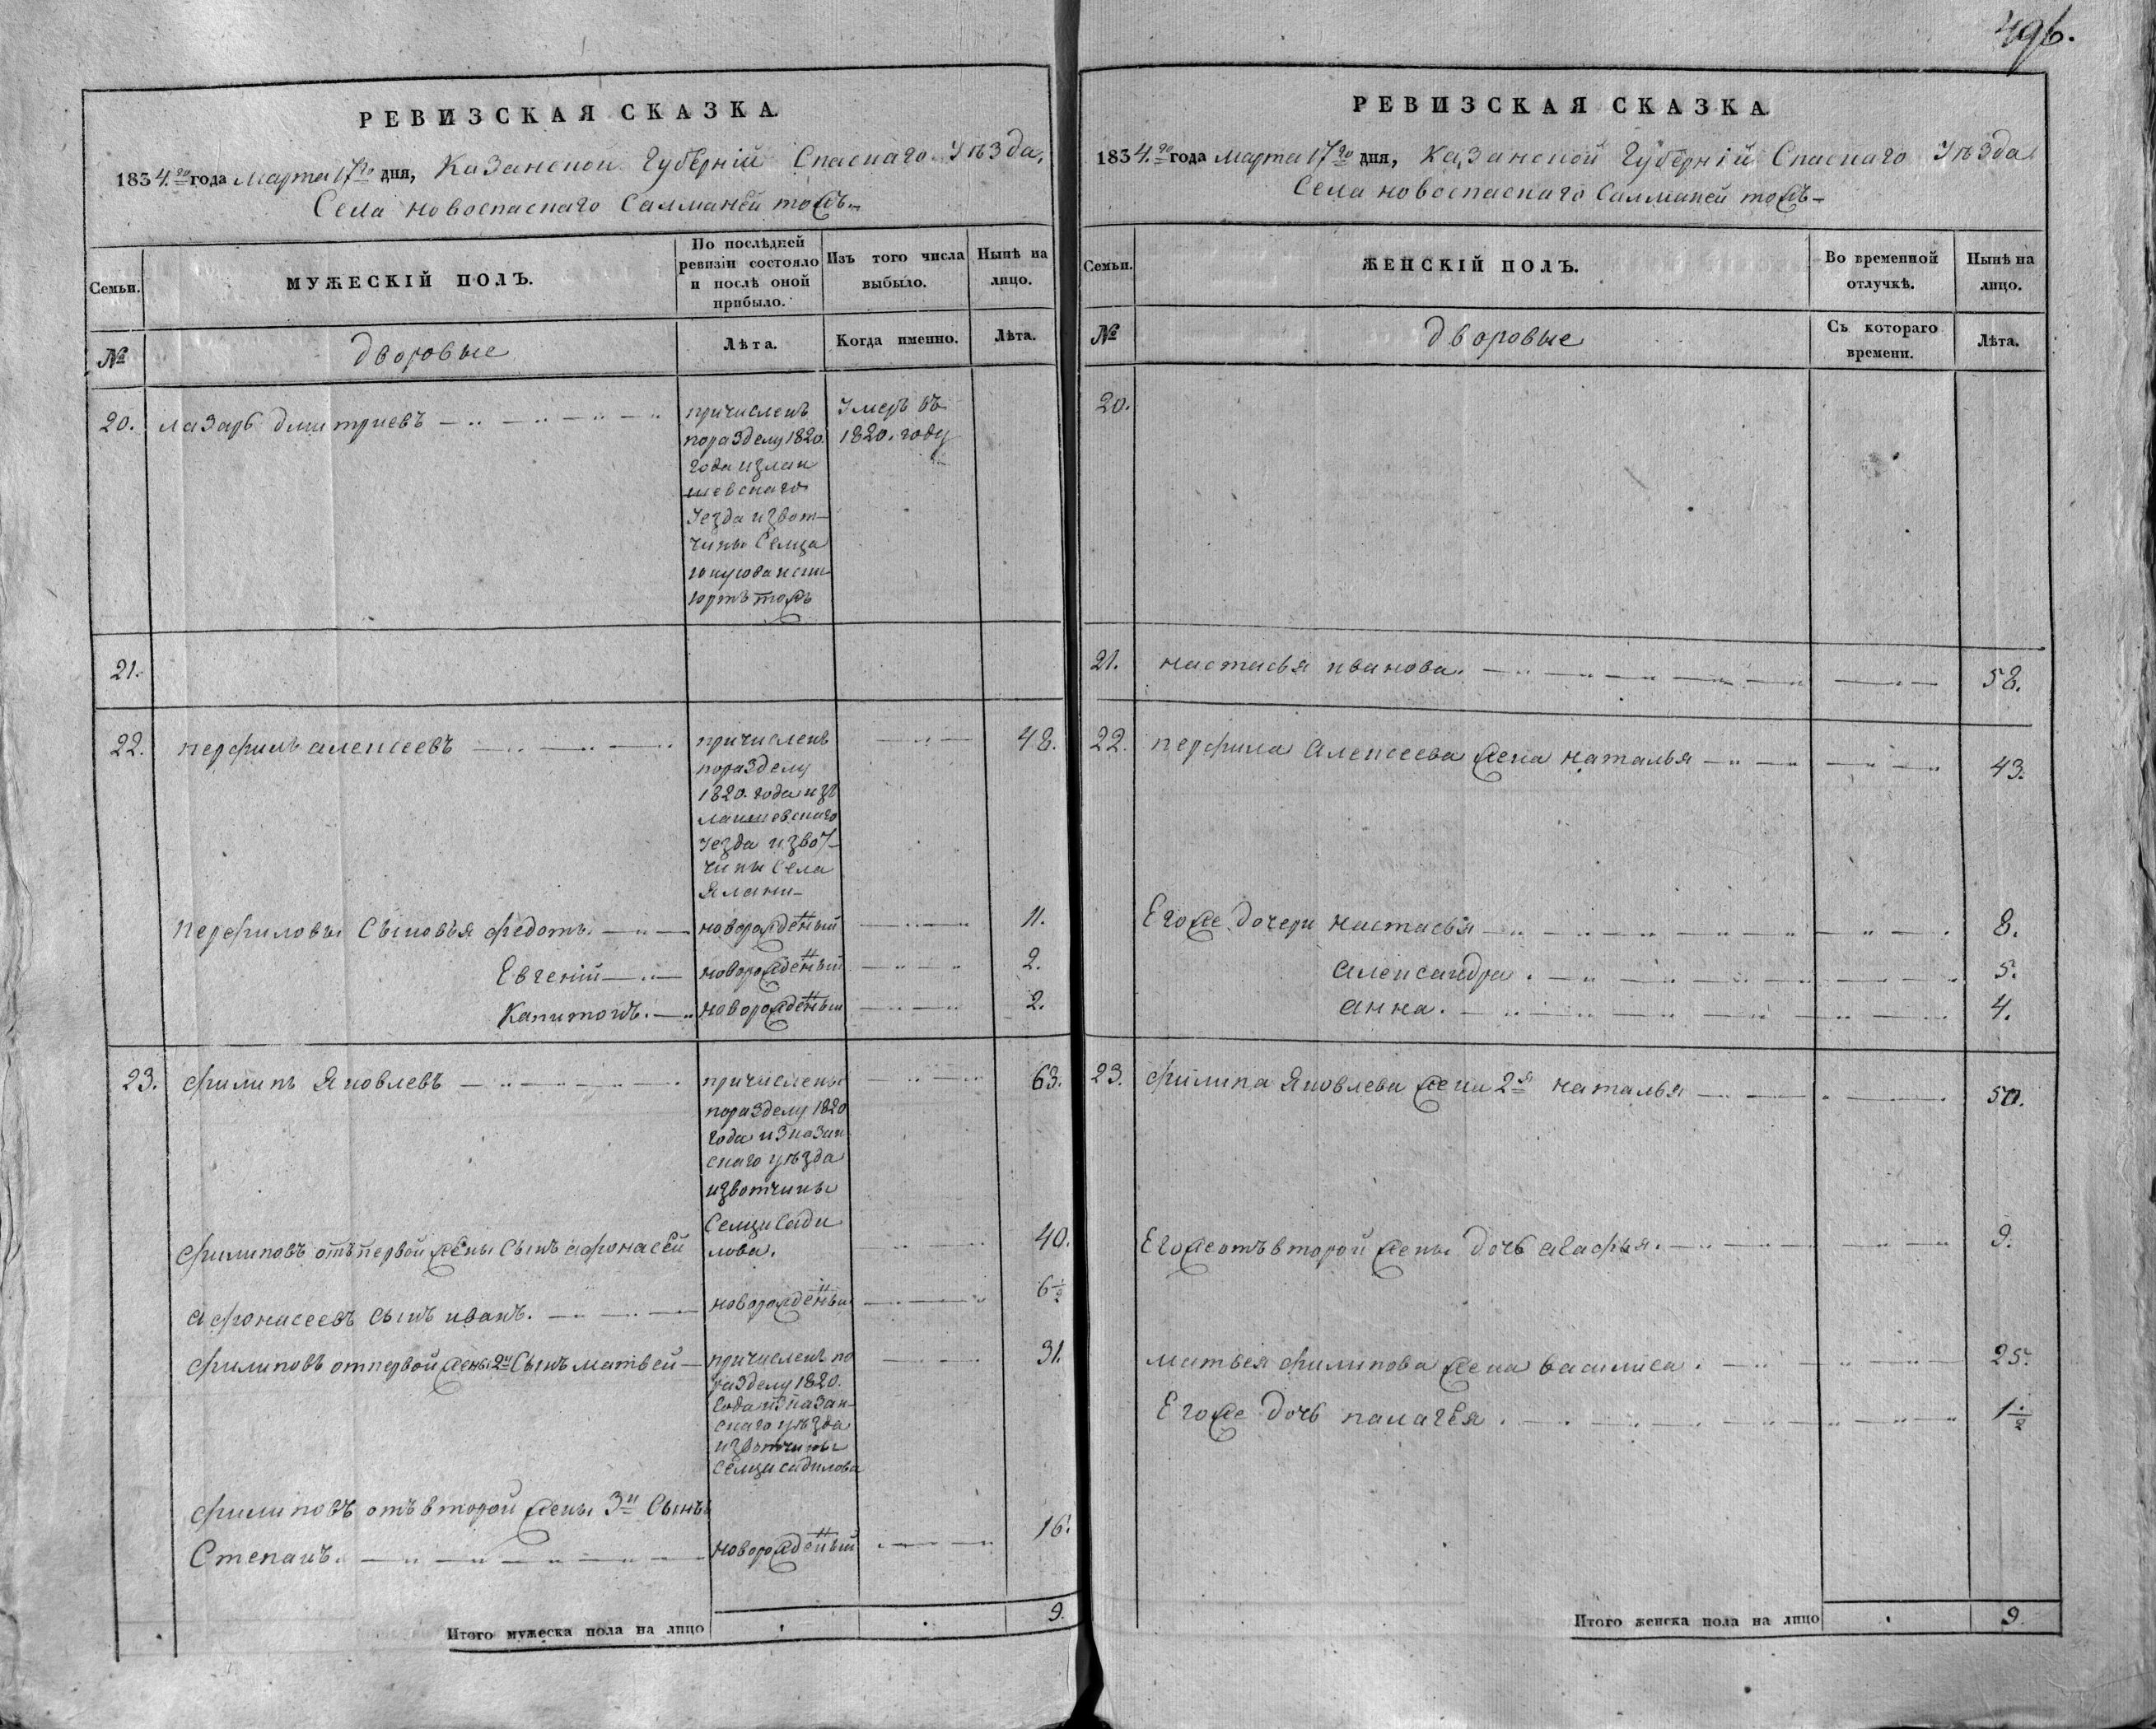 496.
РЕВИЗСКАЯ СКАЗКА
1834.го года марта 17го дня, Казанской Губерній Спаскаго Уѣзда,
Села новоспаскаго Салманей тожъ
Семьи.
МУЖЕСКІЙ ПОЛЪ.
По послѣдней ревизіи состояло и послѣ оной прибыло.
Изъ того числа выбыло.
Нынѣ на лицо.
№
дворовые
Лѣта.
Когда именно.
Лѣта.
20. лазарь дмитриевъ
причисленъ
поразделу 1820.
года излаи
шевскаго
Уезда извот-
чины Селца
тожъ
Умеръ въ
1820. году
21.
22. перфилъ алексеевъ
причисленъ
поразделу
1820. года изъ
лаишевскаго
Уезда извот-
чины Села
48.
перфиловы Сыновья федотъ. новорожденый 11.
Евгеній новорожденый 2.
Капитонъ. новорожденый 2.
23. филипъ Яковлевъ
причислены
поразделу 1820
года изказан
скаго уѣзда
извотчины
Селца Сади
лова.
63.
филиповъ отъ первой жены Сынъ афонасей 40.
афонасеевъ сынъ иванъ. новорожденый 6½
филиповъ отпервой жены 2й Сынъ матвей
причисленъ по
разделу 1820.
года изказан-
скаго уѣзда
извотчины
Селца садилова
31.
филиповъ отъ второй жены 3й Сынъ
Степанъ. новорожденый 16.
Итого мужеска пола на лицо 9.
РЕВИЗСКАЯ СКАЗКА.
1834.го года марта 17го дня, Казанской Губерній Спаскаго Уѣзда
Села новоспаскаго Салманей тожъ
Семьи.
ЖЕНСКІЙ ПОЛЪ.
Во временной отлучкѣ.
Нынѣ на лицо.
№
дворовые
Съ котораго времени.
Лѣта.
20.
21. настасья иванова. 58.
22. перфила Алексеева жена наталья 43.
Егоже дочери настасья 8.
александра. 5.
анна. 4.
23. филипа Яковлева жена 2я наталья 50.
Егоже отъ второй жены дочь агафья. 9.
матвея филипова жена василиса. 25.
Егоже дочь палагея. 1½
Итого женска пола на лицо 9.